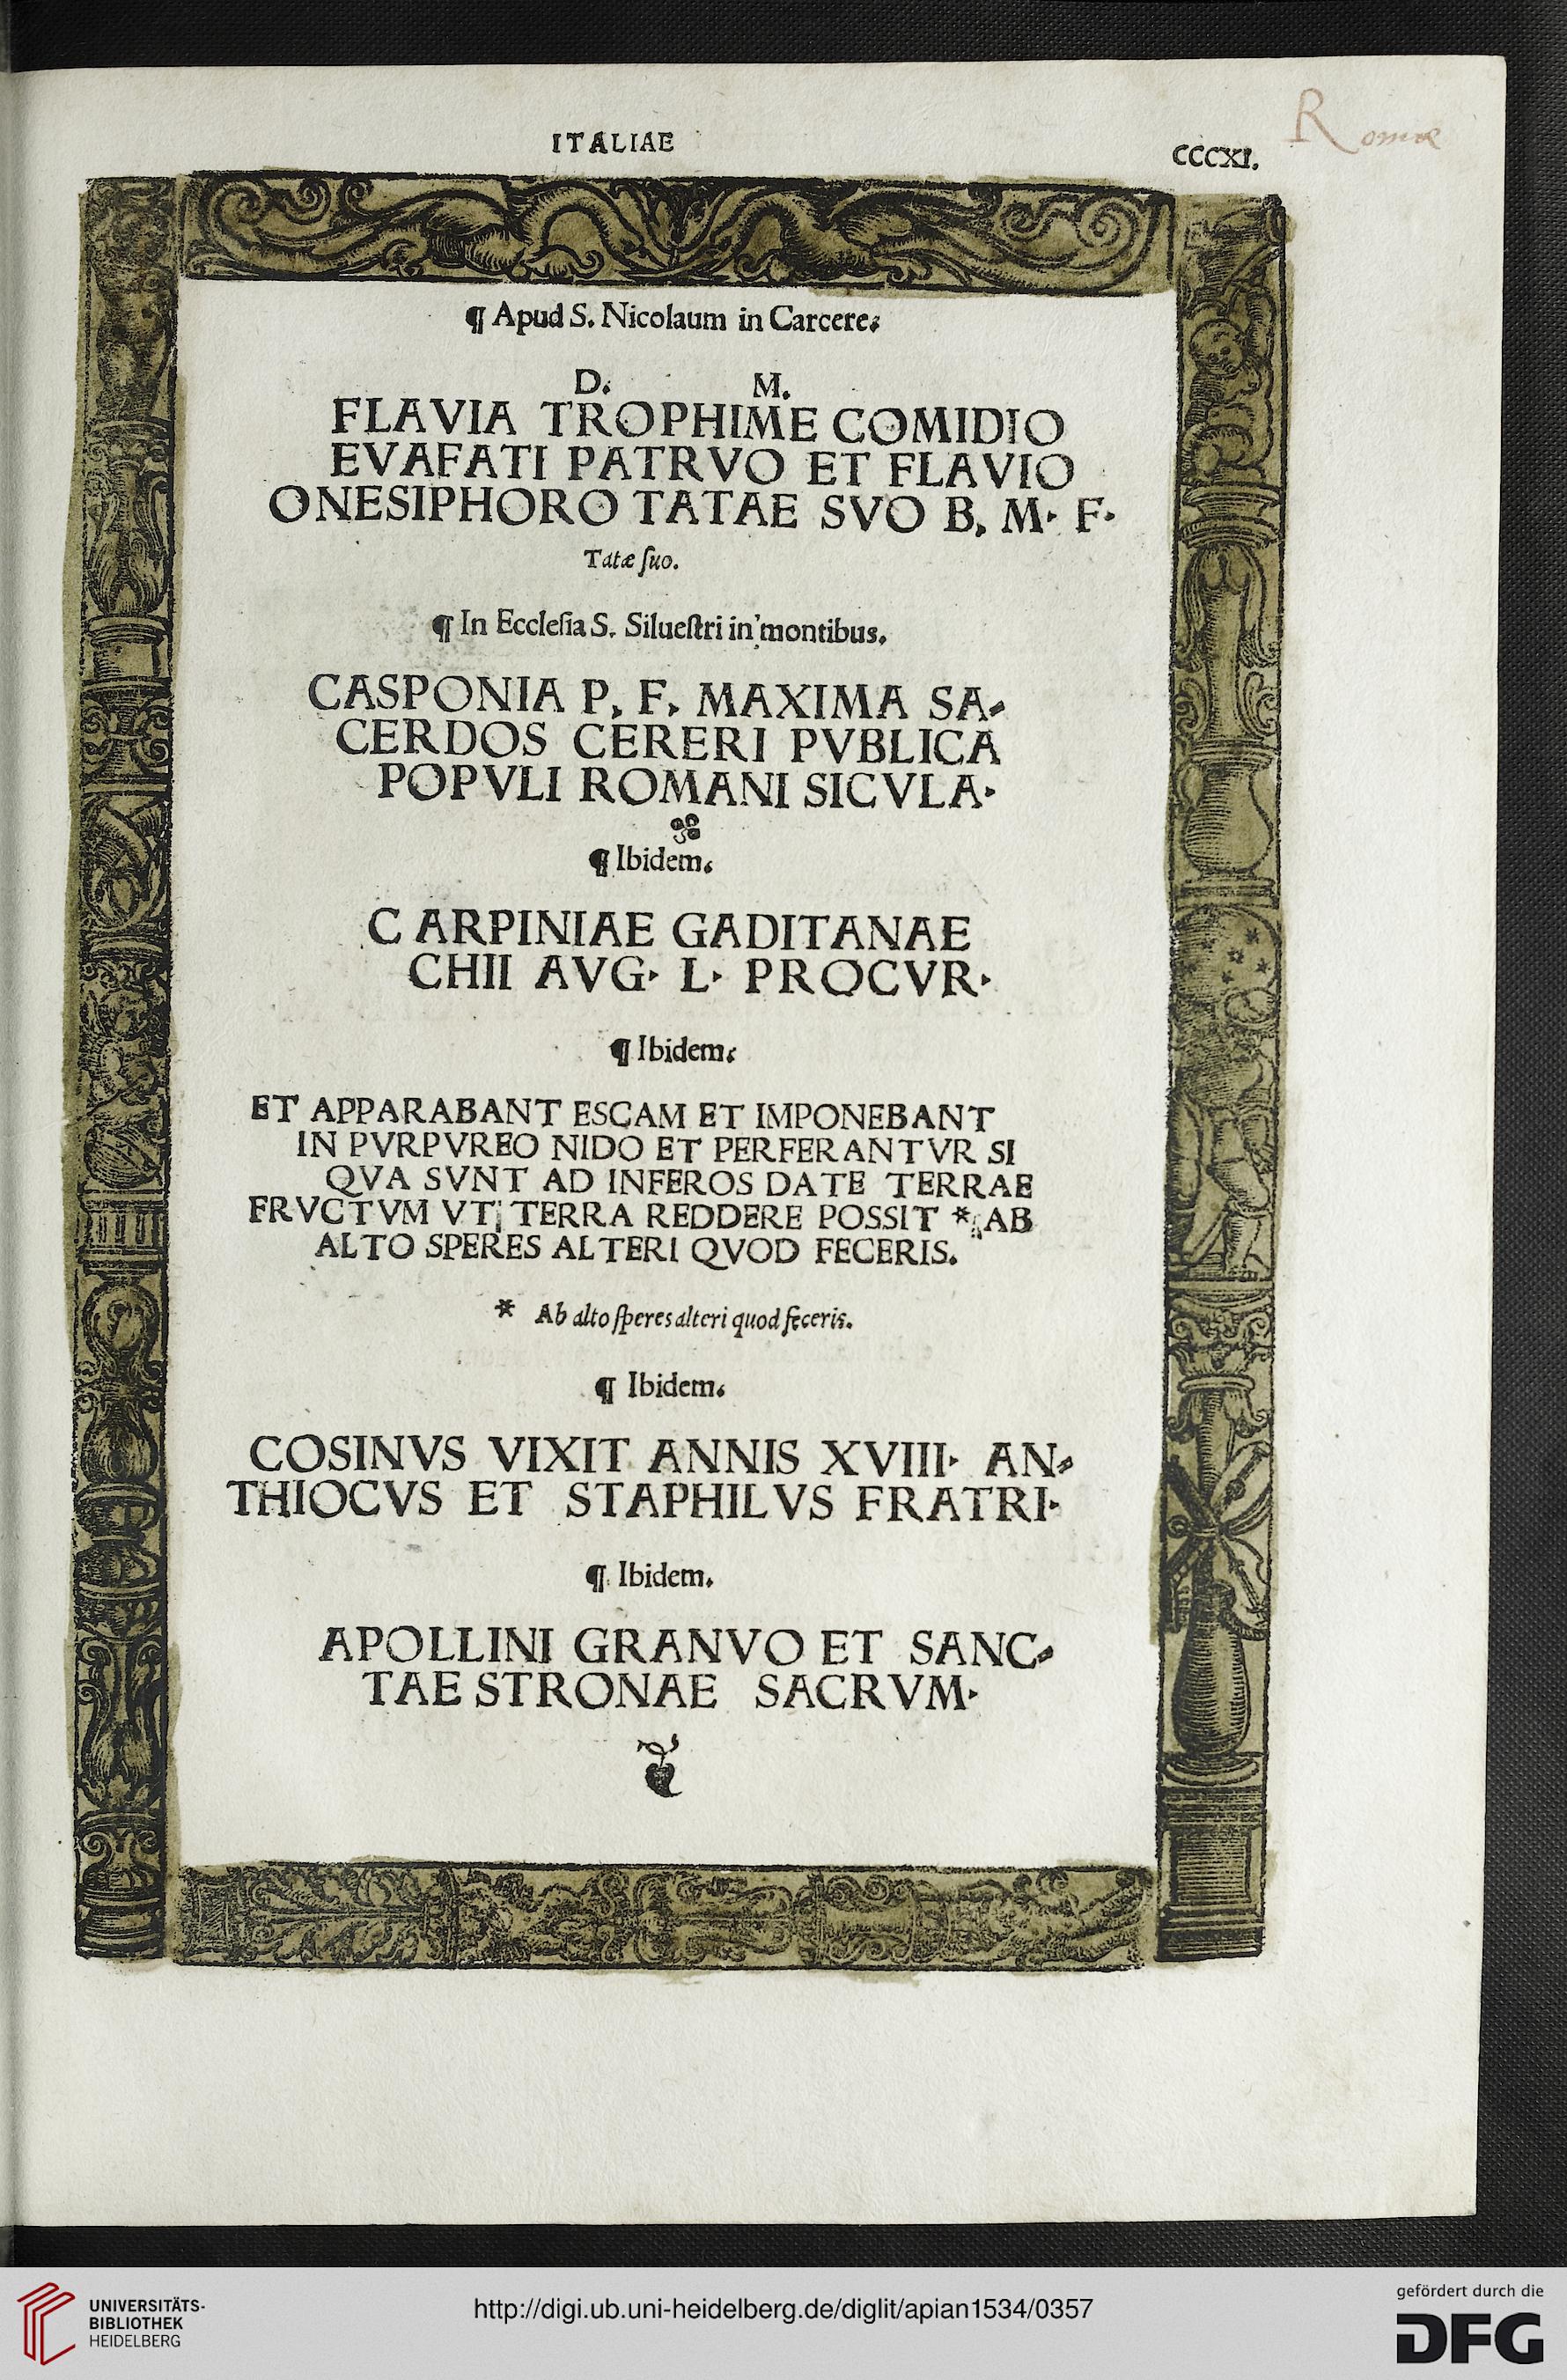 ITALIAE
CCCXI.
Romæ
¶ Apud S. Nicolaum in Carcere.
D. M.
FLAVIA TROPHIME COMIDIO
EVAFATI PATRVO ET FLAVIO
ONESIPHORO TATAE SVO B. M. F.
Tatæ ſuo.
¶ In Eccleſia S. Silueſtri in montibus.
CASPONIA P. F. MAXIMA SA⸗
CERDOS CERERI PVBLICA
POPVLI ROMANI SICVLA.
¶ Ibidem.
CARPINIAE GADITANAE
CHII AVG. L. PROCVR.
¶ Ibidem.
ET APPARABANT ESCAM ET IMPONEBANT
IN PVRPVREO NIDO ET PERFERANTVR SI
QVA SVNT AD INFEROS DATE TERRAE
FRVCTVM VT TERRA REDDERE POSSIT * AB
ALTO SPERES ALTERI QVOD FECERIS.
* Ab alto ſperes alteri quod feceris.
¶ Ibidem.
COSINVS VIXIT ANNIS XVIII. AN⸗
THIOCVS ET STAPHILVS FRATRI.
¶ Ibidem.
APOLLINI GRANVO ET SANC⸗
TAE STRONAE SACRVM.
UNIVERSITÄTS-
BIBLIOTHEK
HEIDELBERG
http://digi.ub.uni-heidelberg.de/diglit/apian1534/0357
gefördert durch die
DFG